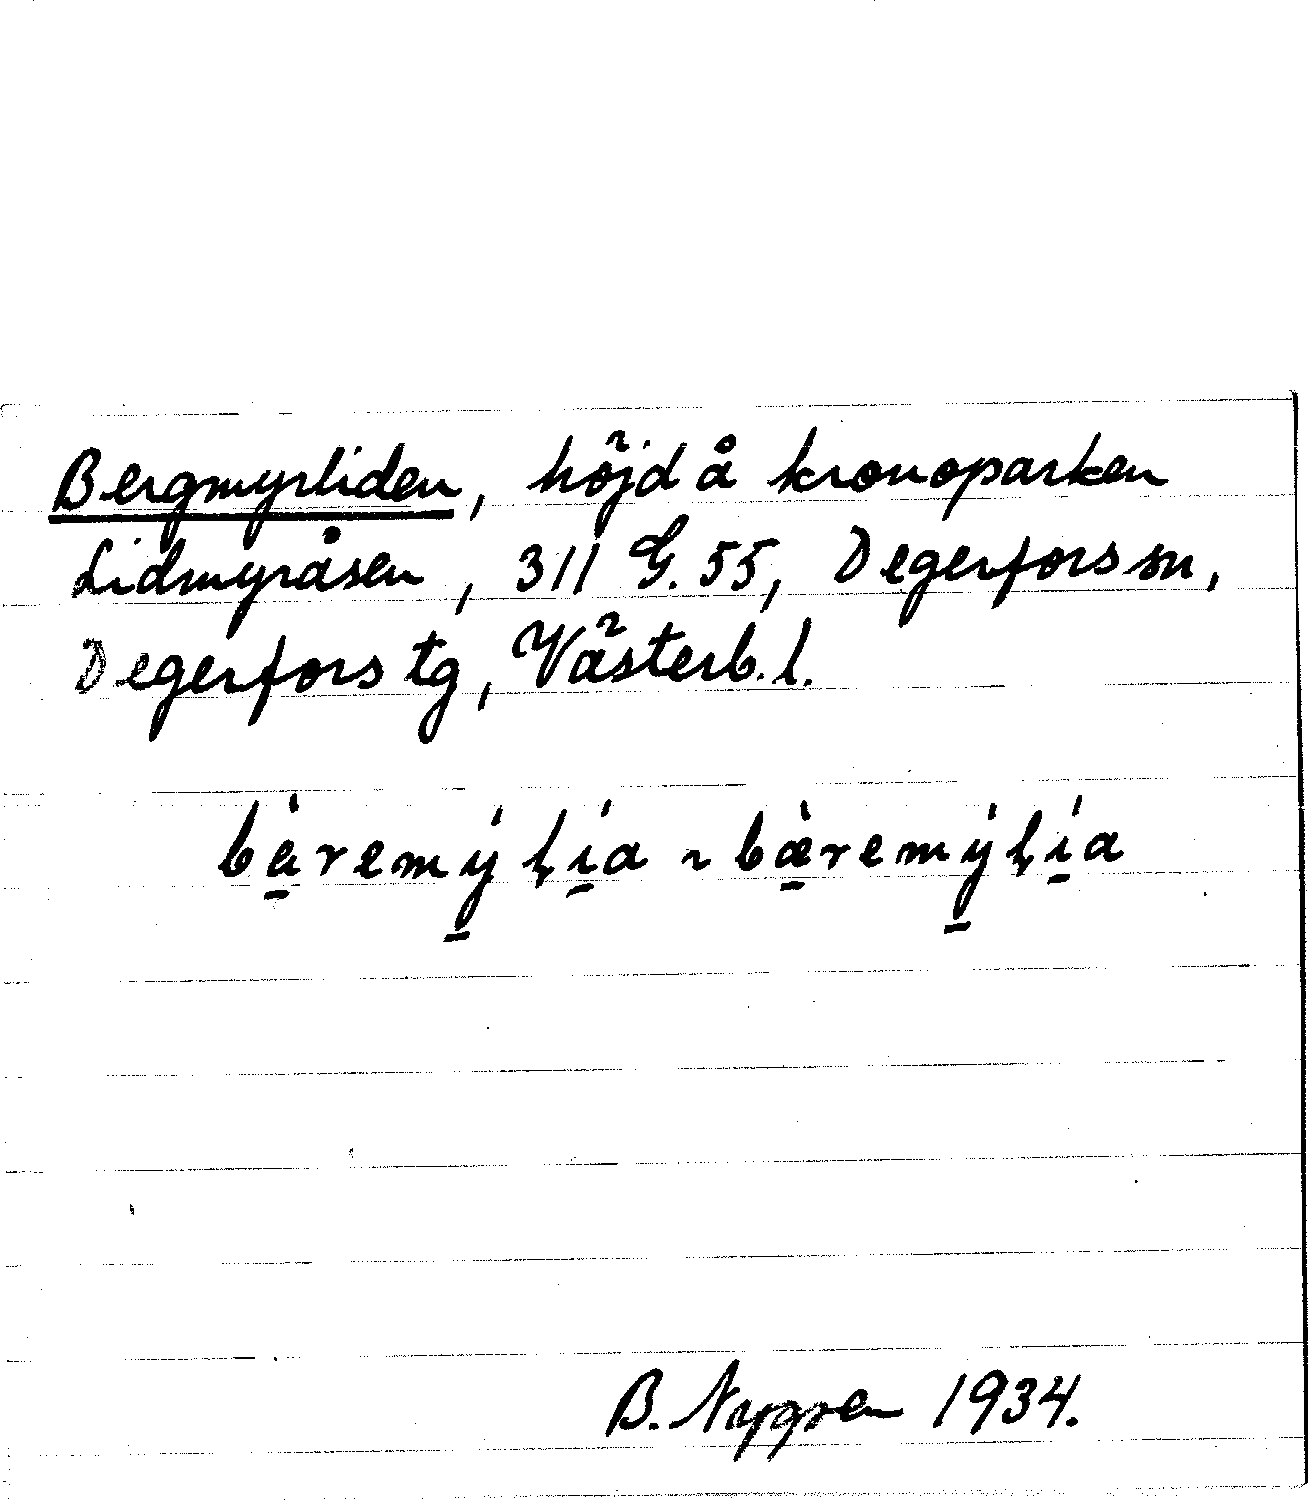 Bergmyrliden, höjd å kronoparken
Lidmyråsen, 311 G. 55, Degerfors sn,
Degerfors tg, Västerb. l.
bà̱remý̱ḷí̱a ~ bæ̱̀remý̱ḷí̱a
B. Nygren 1934.